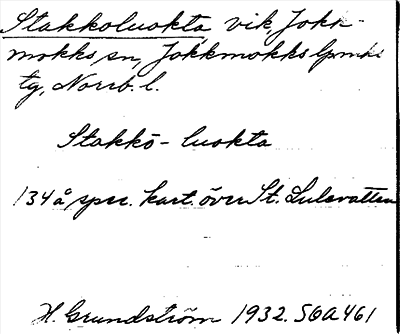 Stakkoluokta vik, Jokk-
mokks sn, Jokkmokks lpmks
tg, Norrb. l.
Stakkō-luokta
134 å spec. kart. över St. Lulevatten
H. Grundström 1932. SOA 461